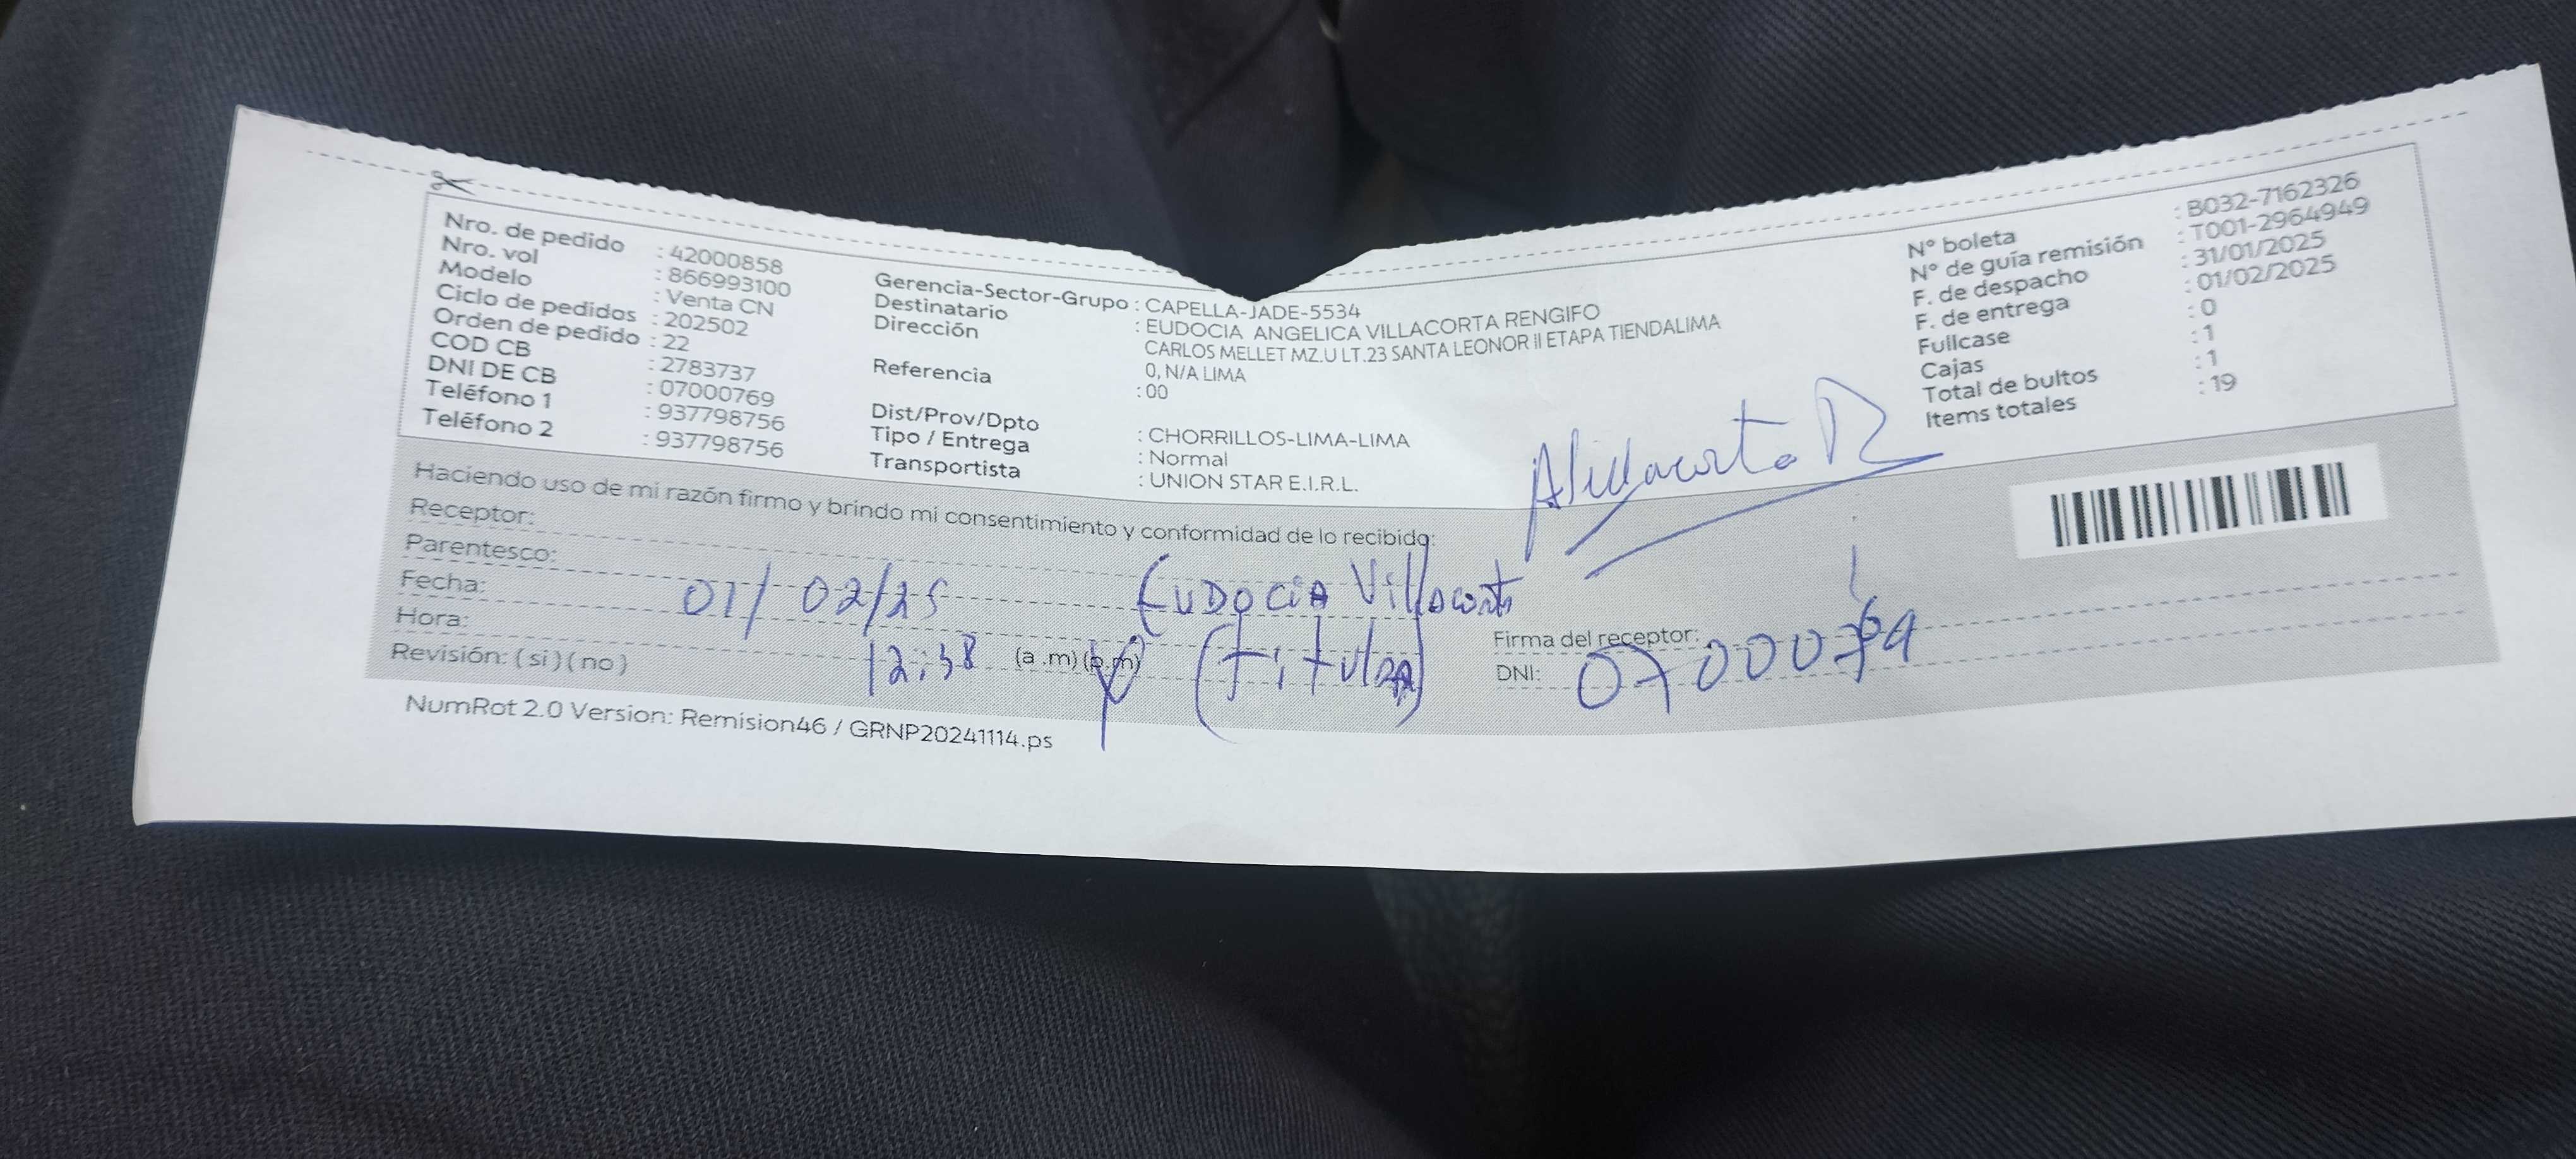 Nro. de pedido : 42000858
Nro. vol : 866993100
Modelo : Venta CN
Ciclo de pedidos : 202502
Orden de pedido : 22
COD CB : 2783737
DNI DE CB : 07000769
Teléfono 1 : 937798756
Teléfono 2 : 937798756
Gerencia-Sector-Grupo : CAPELLA-JADE-5534
Destinatario : EUDOCIA ANGELICA VILLACORTA RENGIFO
Dirección CARLOS MELLET MZ.U LT.23 SANTA LEONOR II ETAPA TIENDALIMA
0, N/A LIMA
Referencia : 00
Dist/Prov/Dpto : CHORRILLOS-LIMA-LIMA
Tipo / Entrega : Normal
Transportista : UNION STAR E.I.R.L.
N° boleta : B032-7162326
N° de guía remisión : T001-2964949
F. de despacho : 31/01/2025
F. de entrega : 01/02/2025
Fullcase : 0
Cajas : 1
Total de bultos : 1
Items totales : 19
Haciendo uso de mi razón firmo y brindo mi consentimiento y conformidad de lo recibido:
Receptor: Eudocia Villacorta
Parentesco: (titular)
Fecha: 01/02/25
Hora: 12:38 (a.m) (p.m)
Revisión: ( si ) ( no )
AVillacorta R
Firma del receptor:
DNI: 07000769
NumRot 2.0 Version: Remision46 / GRNP20241114.ps